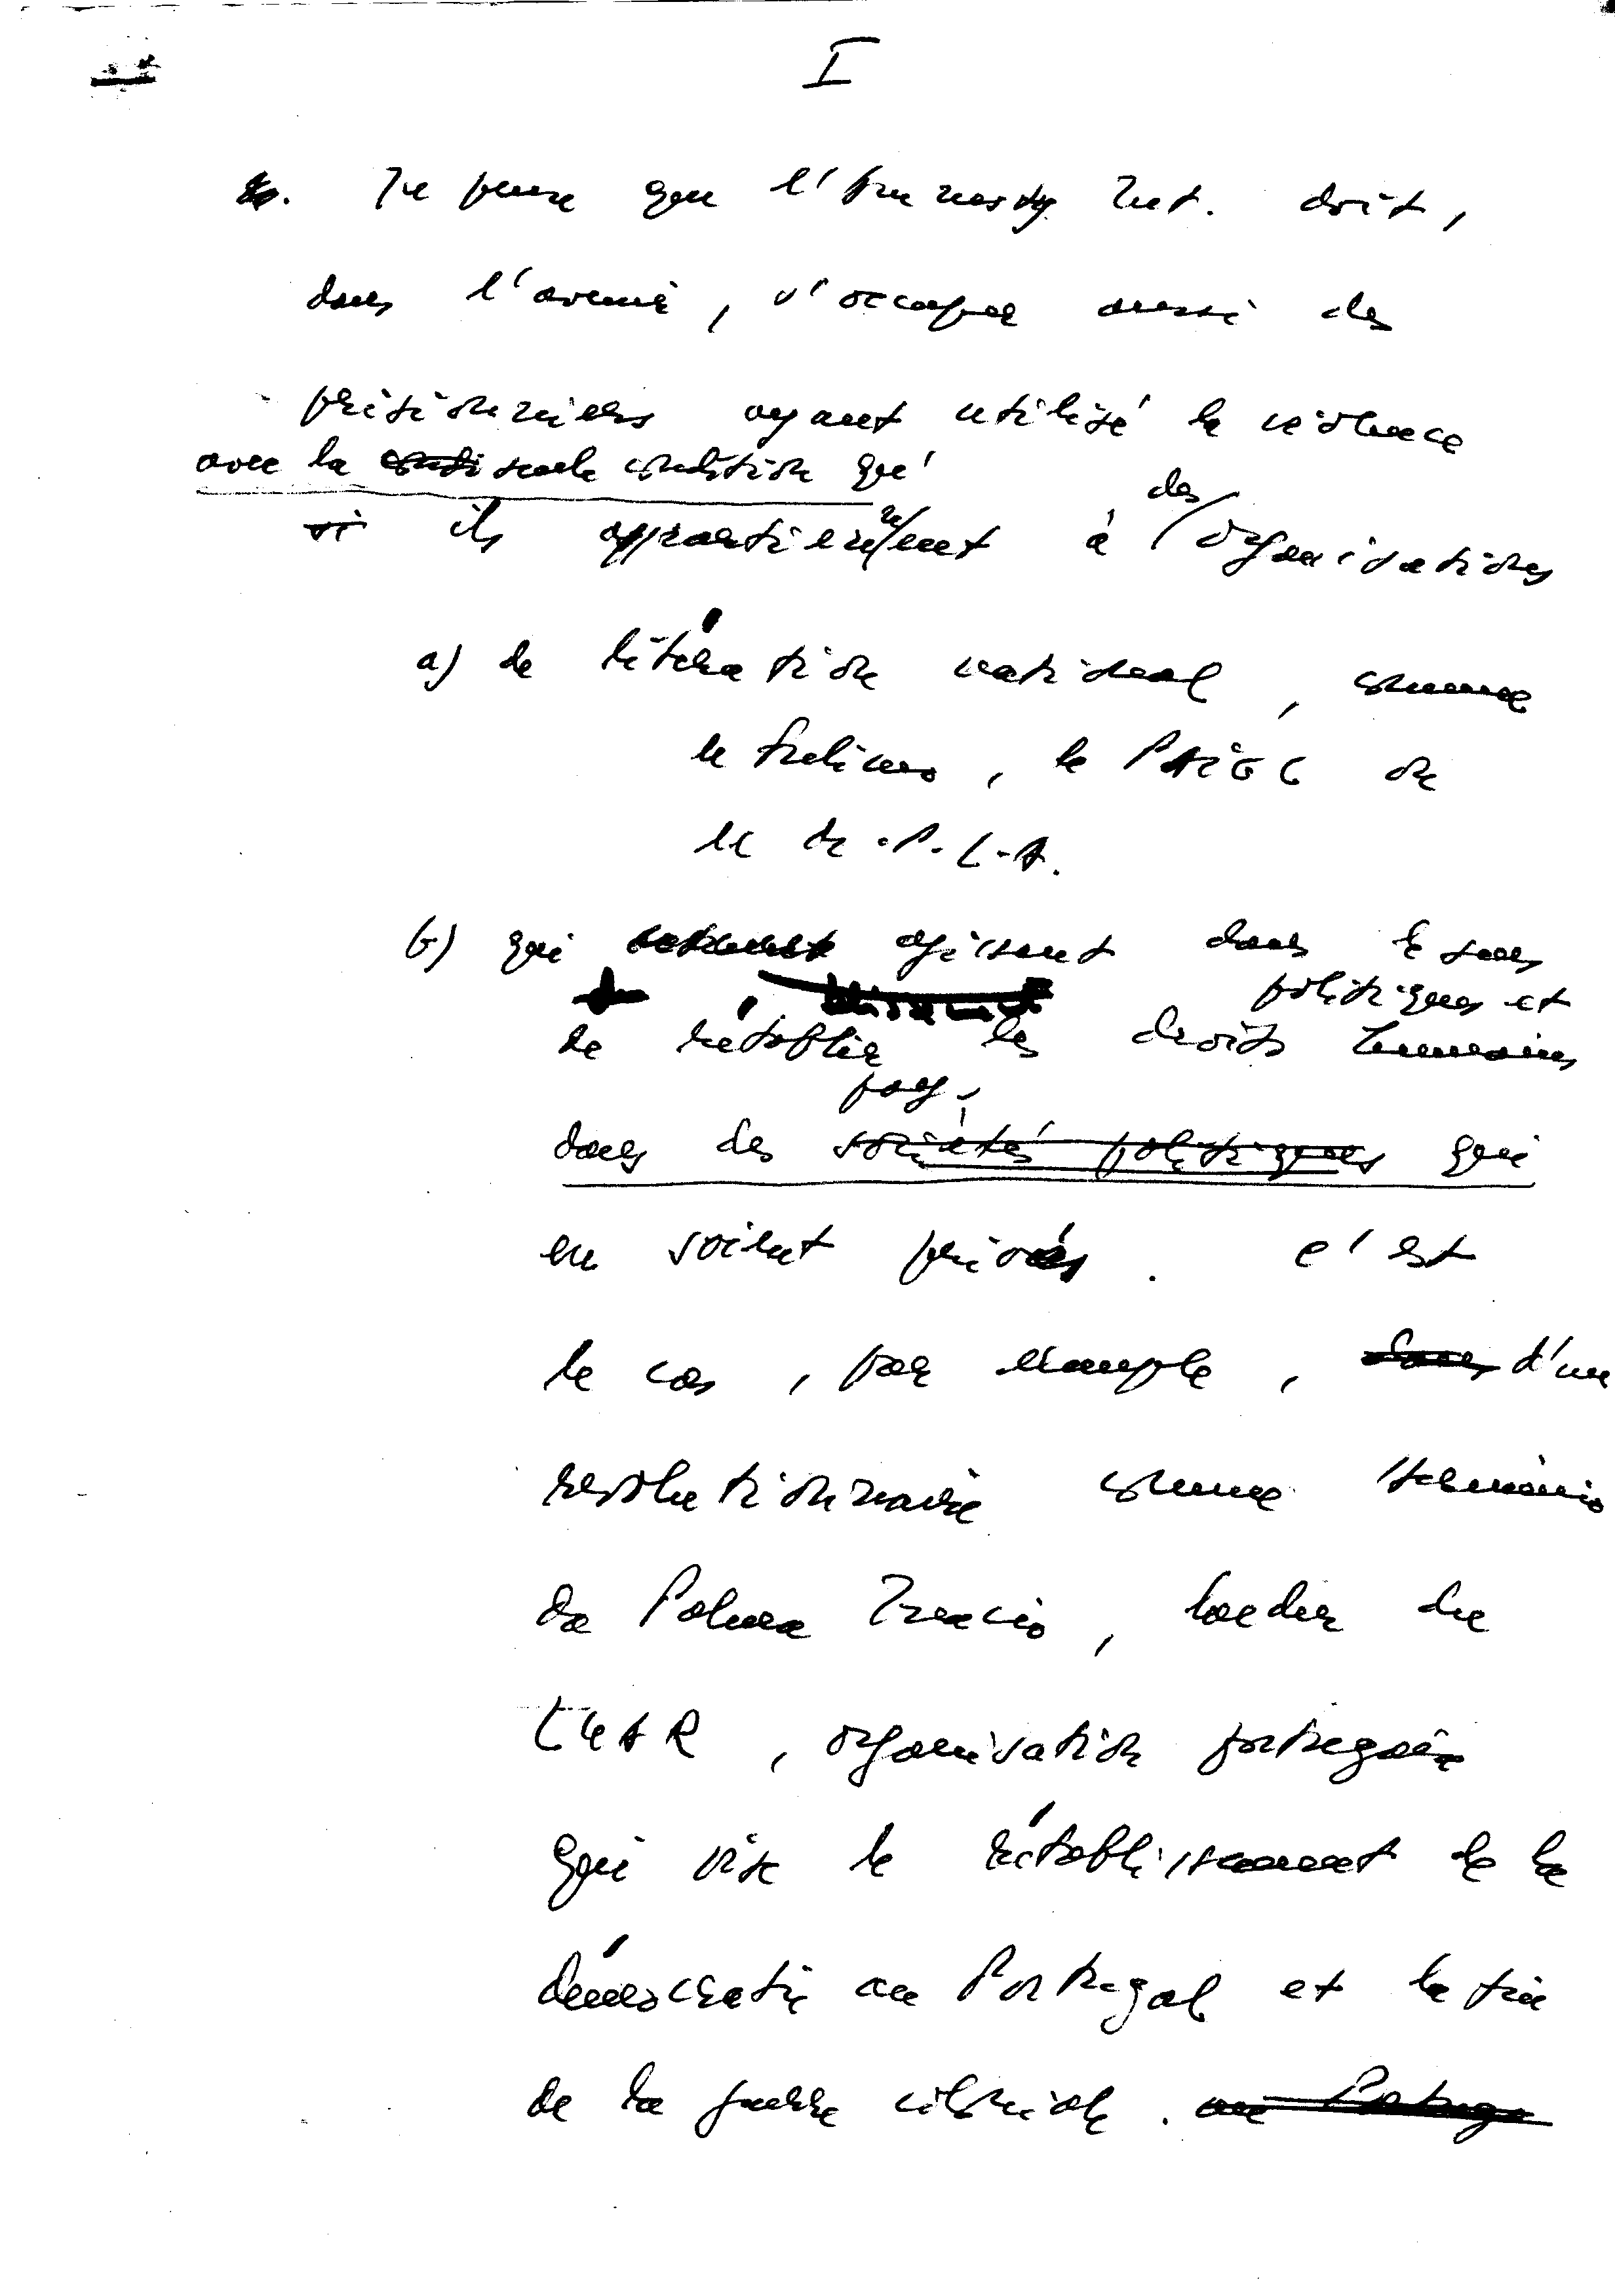 I
Je pense que l'Amnesty Int. doit,
dans l'avenir, s'occuper aussi des
prisionniers ayant utilisé la violence
avec la condi seule condition qu'
si ils appartiennent à des organisations
a) de libération national, comme
le Frelimo, le PAIGC ou
le M.P.L.A.
b) qui agissent dans le sens
de rétablir les droits politiques et humains
dans des sociétés politiques pays qui
en soient privés. C'est
le cas, par exemple, dans d'un
revolutionnaire comme Herminio
da Palma Inacio, leader du
LUAR, organisation portugaise
qui vise le rétablissement de la
démocratie au Portugal et la fin
de la guerre coloniale. au Portuga